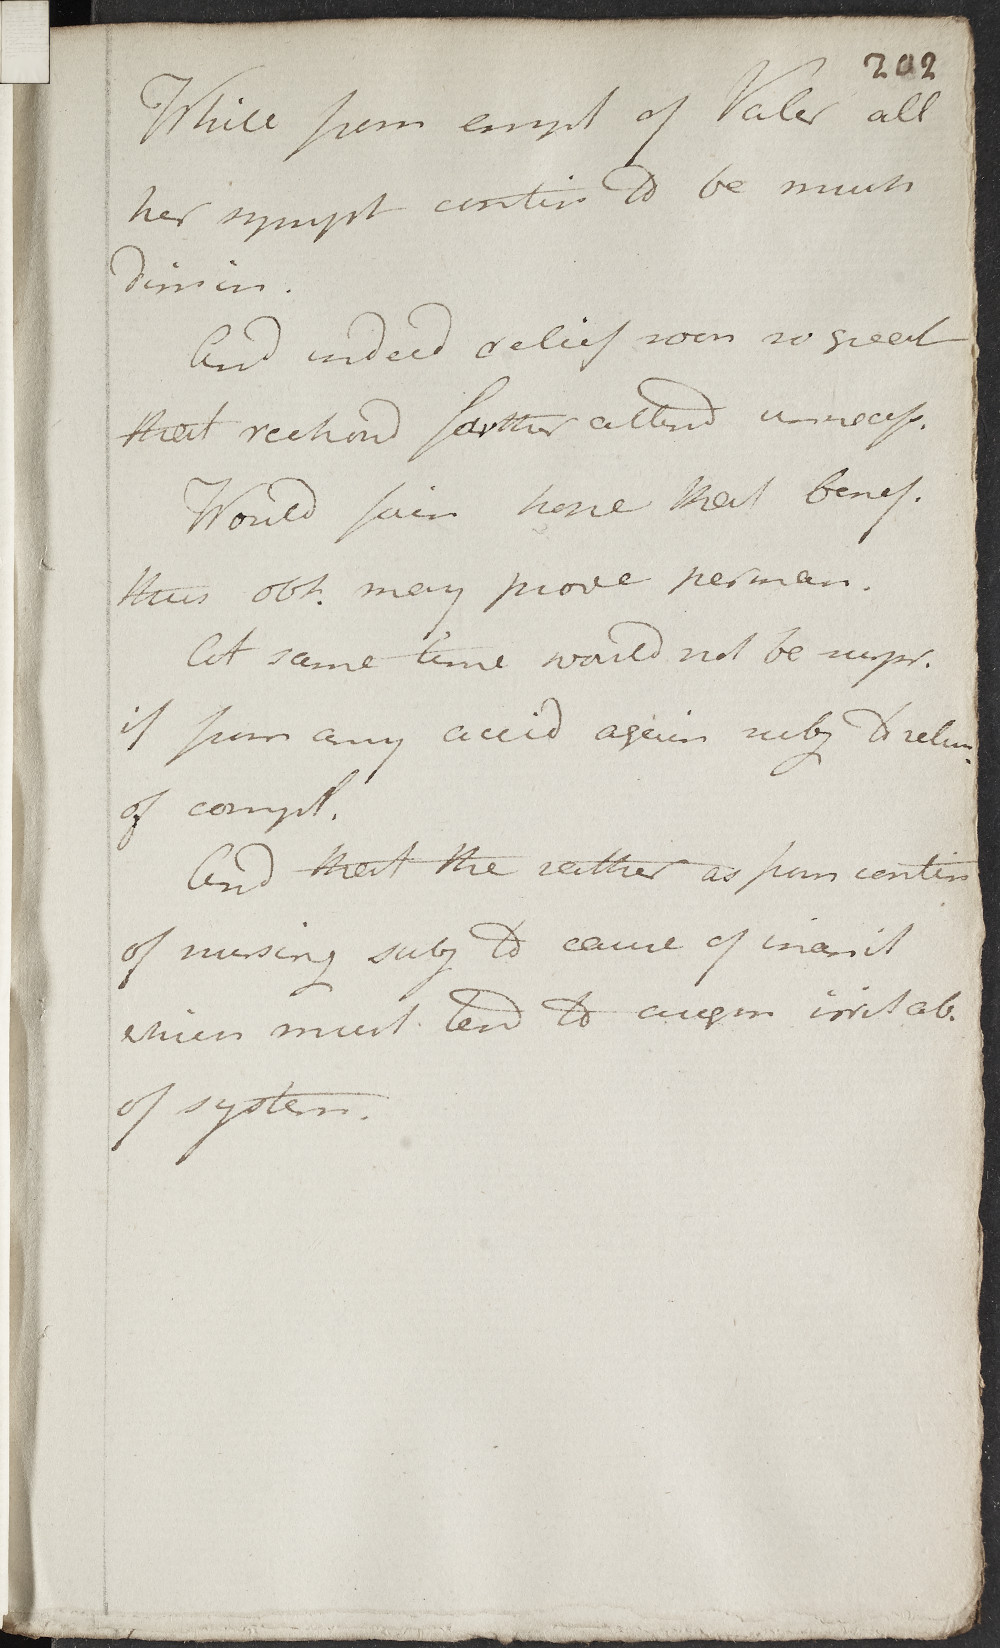 202
While from empl of Valer all
her sympt contin to be much
dimin.
And indeed relief soon so great
that reckond farther attend unnecess.
Would fain hope that benef.
thus obt. may prove perman.
At same time would not be surpr.
if from any accid again subj to return
of compl.
And that the rather as from contin
of nursing subj to cause of inanit
which must tend to augm irritab.
of system.